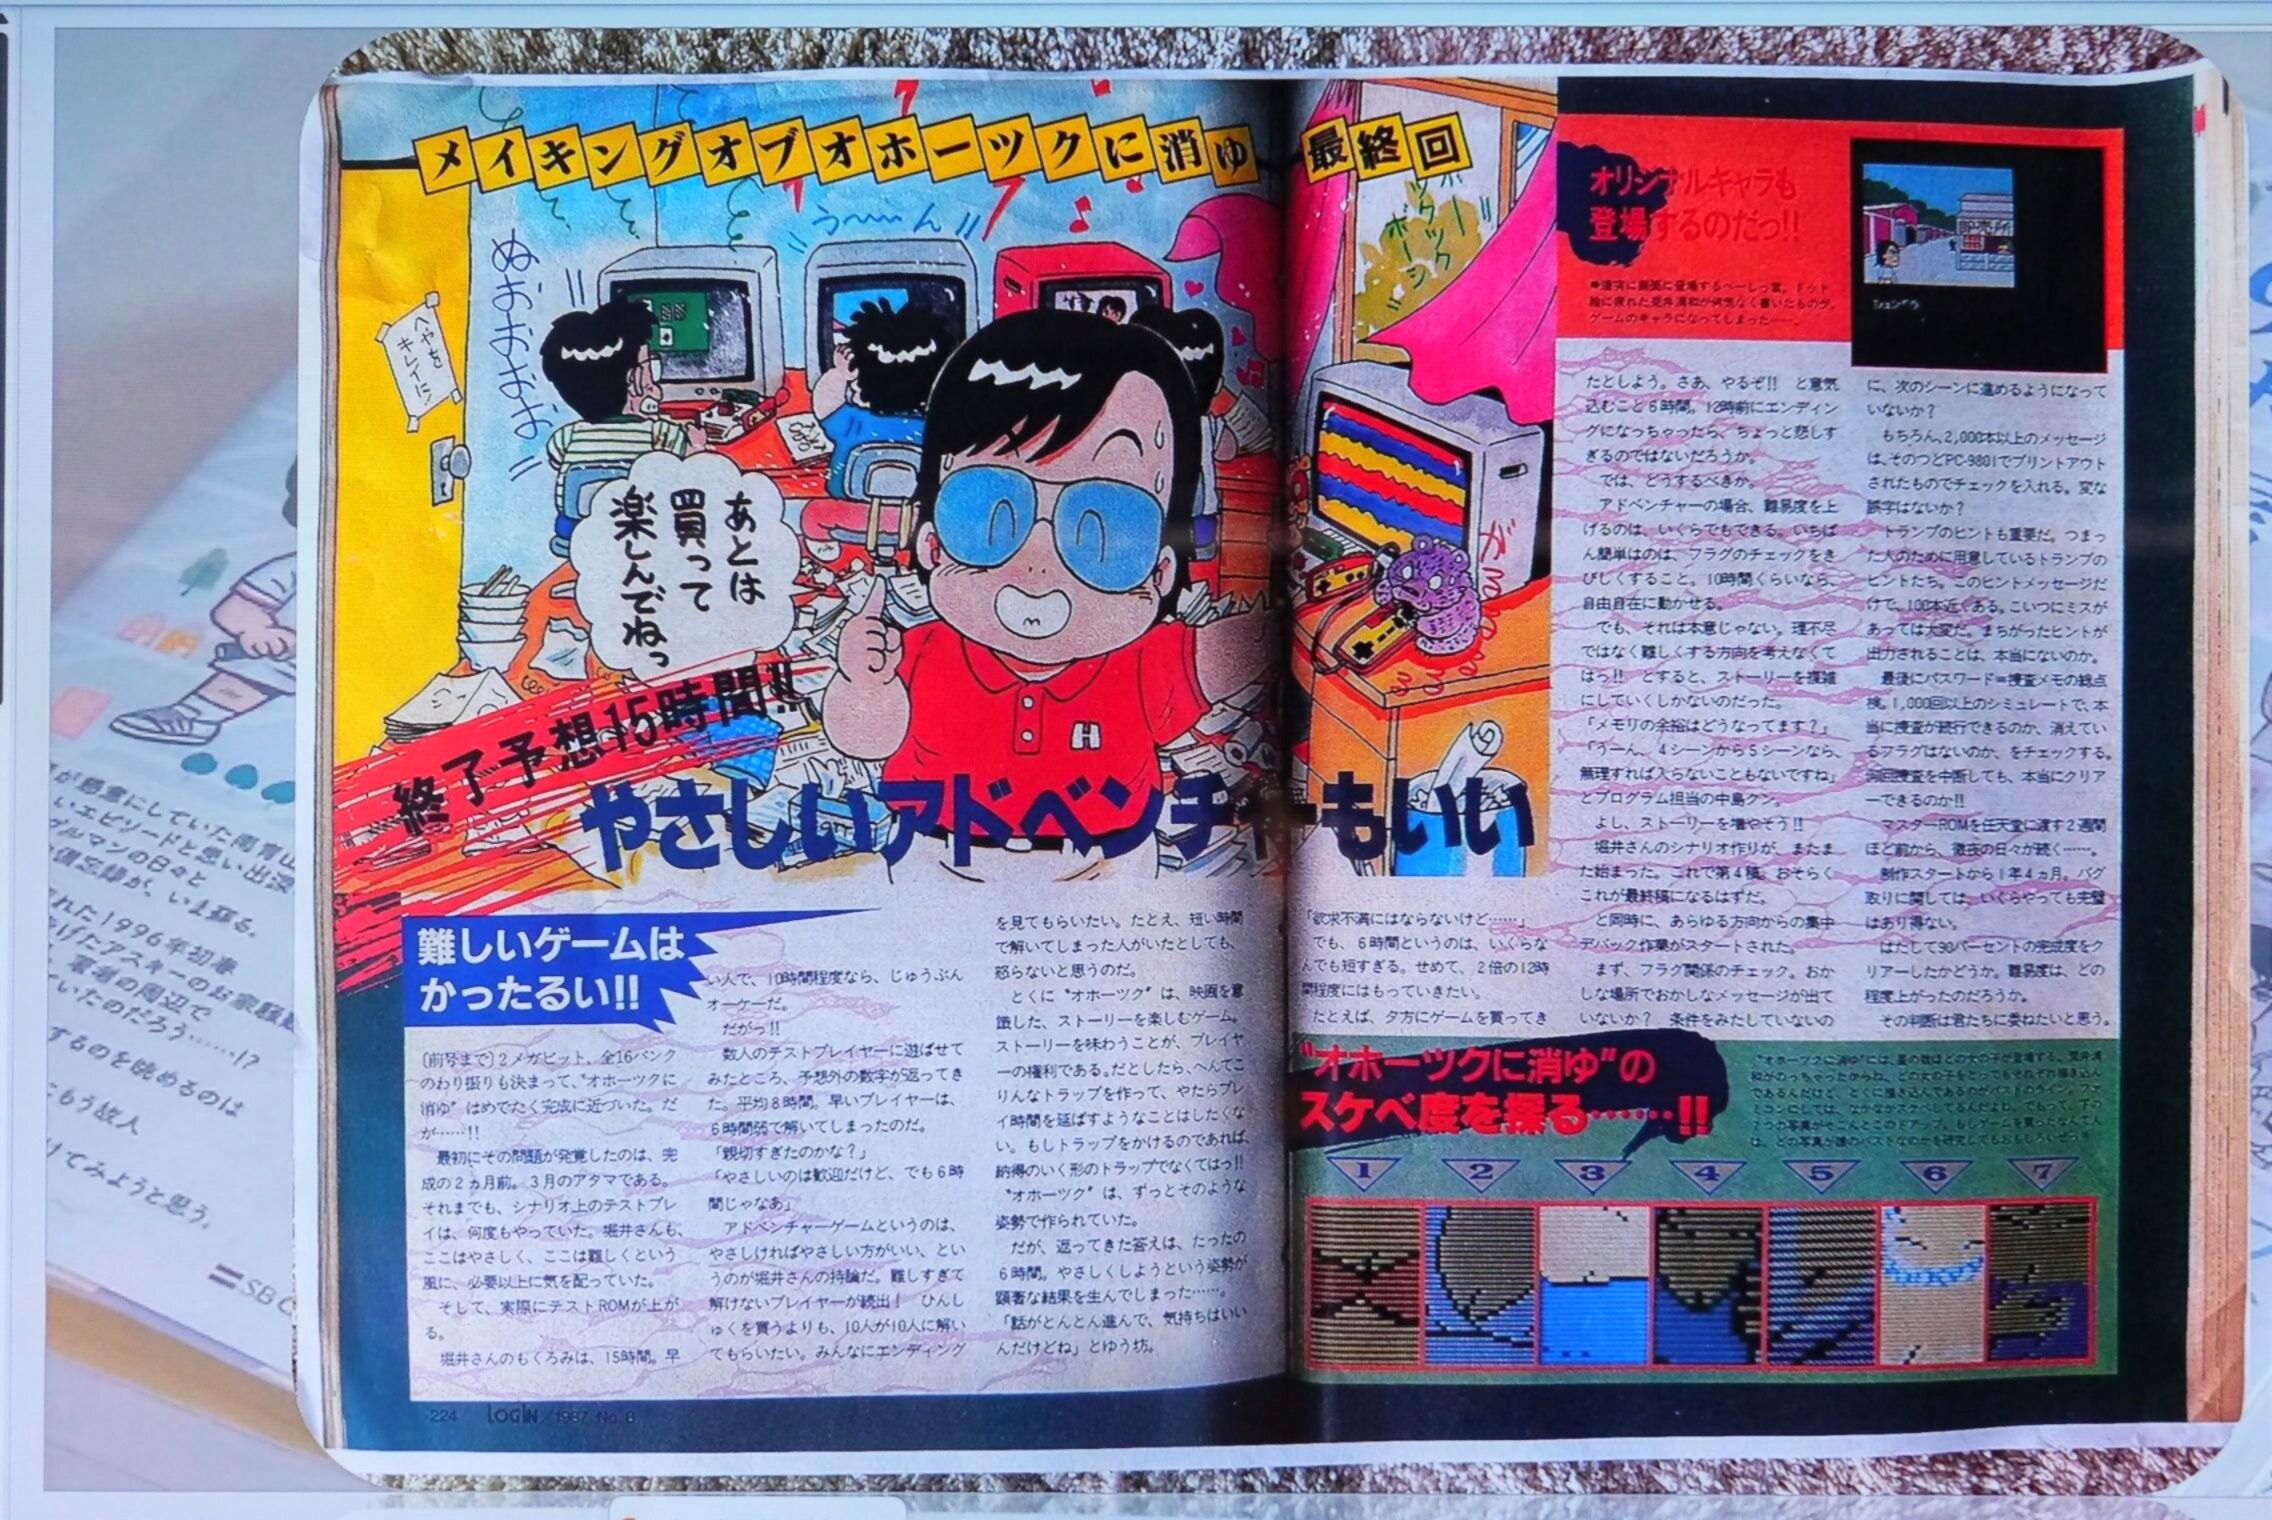 メイキングオブオホーツクに消ゆ 最終回
ぬおおおおお
う〜〜〜ん!!
へやを
キレイに!
あとは
買って
楽しんでねっ
H
終了予想15時間!!
やさしいアドベンチャーもいい
難しいゲームは
かったるい!!
〔前号まで〕2メガビット、全16バンク
のわり振りも決まって、"オホーツクに
消ゆ"はめでたく完成に近づいた。だ
が……!!
最初にその問題が発覚したのは、完
成の2ヵ月前。3月のアタマである。
それまでも、シナリオ上のテストプレ
イは、何度もやっていた。堀井さんも、
ここはやさしく、ここは難しくという
風に、必要以上に気を配っていた。
そして、実際にテストROMが上が
る。
堀井さんのもくろみは、15時間。早
い人で、10時間程度なら、じゅうぶん
オーケーだ。
だがっ!!
数人のテストプレイヤーに遊ばせて
みたところ、予想外の数字が返ってき
た。平均8時間。早いプレイヤーは、
6時間弱で解いてしまったのだ。
「親切すぎたのかな?」
「やさしいのは歓迎だけど、でも6時
間じゃなあ」
アドベンチャーゲームというのは、
やさしければやさしい方がいい、とい
うのが堀井さんの持論だ。難しすぎて
解けないプレイヤーが続出! ひんし
ゅくを買うよりも、10人が10人に解い
てもらいたい。みんなにエンディング
を見てもらいたい。たとえ、短い時間
で解いてしまった人がいたとしても、
怒らないと思うのだ。
とくに"オホーツク"は、映画を意
識した、ストーリーを楽しむゲーム。
ストーリーを味わうことが、プレイヤ
ーの権利である。だとしたら、へんてこ
りんなトラップを作って、やたらプレ
イ時間を延ばすようなことはしたくな
い。もしトラップをかけるのであれば、
納得のいく形のトラップでなくてはっ!!
"オホーツク"は、ずっとそのような
姿勢で作られていた。
だが、返ってきた答えは、たったの
6時間。やさしくしようという姿勢が
顕著な結果を生んでしまった……。
「話がとんとん進んで、気持ちはいい
んだけどね」とゆう坊。
「欲求不満にはならないけど……」
でも、6時間というのは、いくらな
んでも短すぎる。せめて、2倍の12時
間程度にはもっていきたい。
たとえば、夕方にゲームを買ってき
たとしよう。さあ、やるぞ!! と意気
込むこと6時間。12時前にエンディン
グになっちゃったら、ちょっと悲しす
ぎるのではないだろうか。
では、どうするべきか。
アドベンチャーの場合、難易度を上
げるのは、いくらでもできる。いちば
ん簡単はのは、フラグのチェックをき
びしくすること。10時間くらいなら、
自由自在に動かせる。
でも、それは本意じゃない。理不尽
ではなく難しくする方向を考えなくて
はっ!! とすると、ストーリーを複雑
にしていくしかないのだった。
「メモリの余裕はどうなってます?」
「うーん、4シーンから5シーンなら、
無理すれば入らないこともないですね」
とプログラム担当の中島クン。
よし、ストーリーを増やそう!!
堀井さんのシナリオ作りが、またま
た始まった。これで第4稿。おそらく
これが最終稿になるはずだ。
と同時に、あらゆる方向からの集中
デバック作業がスタートされた。
まず、フラグ関係のチェック。おか
しな場所でおかしなメッセージが出て
いないか? 条件をみたしていないの
に、次のシーンに進めるようになって
いないか?
もちろん、2,000本以上のメッセージ
は、そのつどPC-9801でプリントアウト
されたものでチェックを入れる。変な
誤字はないか?
トランプのヒントも重要だ。つまっ
た人のために用意しているトランプの
ヒントたち。このヒントメッセージだ
けで、100本近くある。こいつにミスが
あっては大変だ。まちがったヒントが
出力されることは、本当にないのか。
最後にパスワード=捜査メモの総点
検。1,000回以上のシミュレートで、本
当に捜査が続行できるのか、消えてい
るフラグはないのか、をチェックする。
何回捜査を中断しても、本当にクリア
ーできるのか!!
マスターROMを任天堂に渡す2週間
ほど前から、徹夜の日々が続く……。
制作スタートから1年4ヵ月。バグ
取りに関しては、いくらやっても完璧
はあり得ない。
はたして90パーセントの完成度をク
リアーしたかどうか。難易度は、どの
程度上がったのだろうか。
その判断は君たちに委ねたいと思う。
オリジナルキャラも
登場するのだっ!!
絵に疲れた荒井清和が何気なく書いたものが、
ゲームのキャラになってしまった……。
"オホーツクに消ゆ"の
スケベ度を探る……!!
1 2 3 4 5 6 7
224 LOGiN/1987 No.8
が懇意にしていた南青山
いエピソードと思い出深
グルマンの日々と
備忘録が、いま蘇る。
れた1996年初春
げたアスキーのお家騒動
いたのだろう……!?
するのを眺めるのは
もう故人
けてみようと思う。
SB C